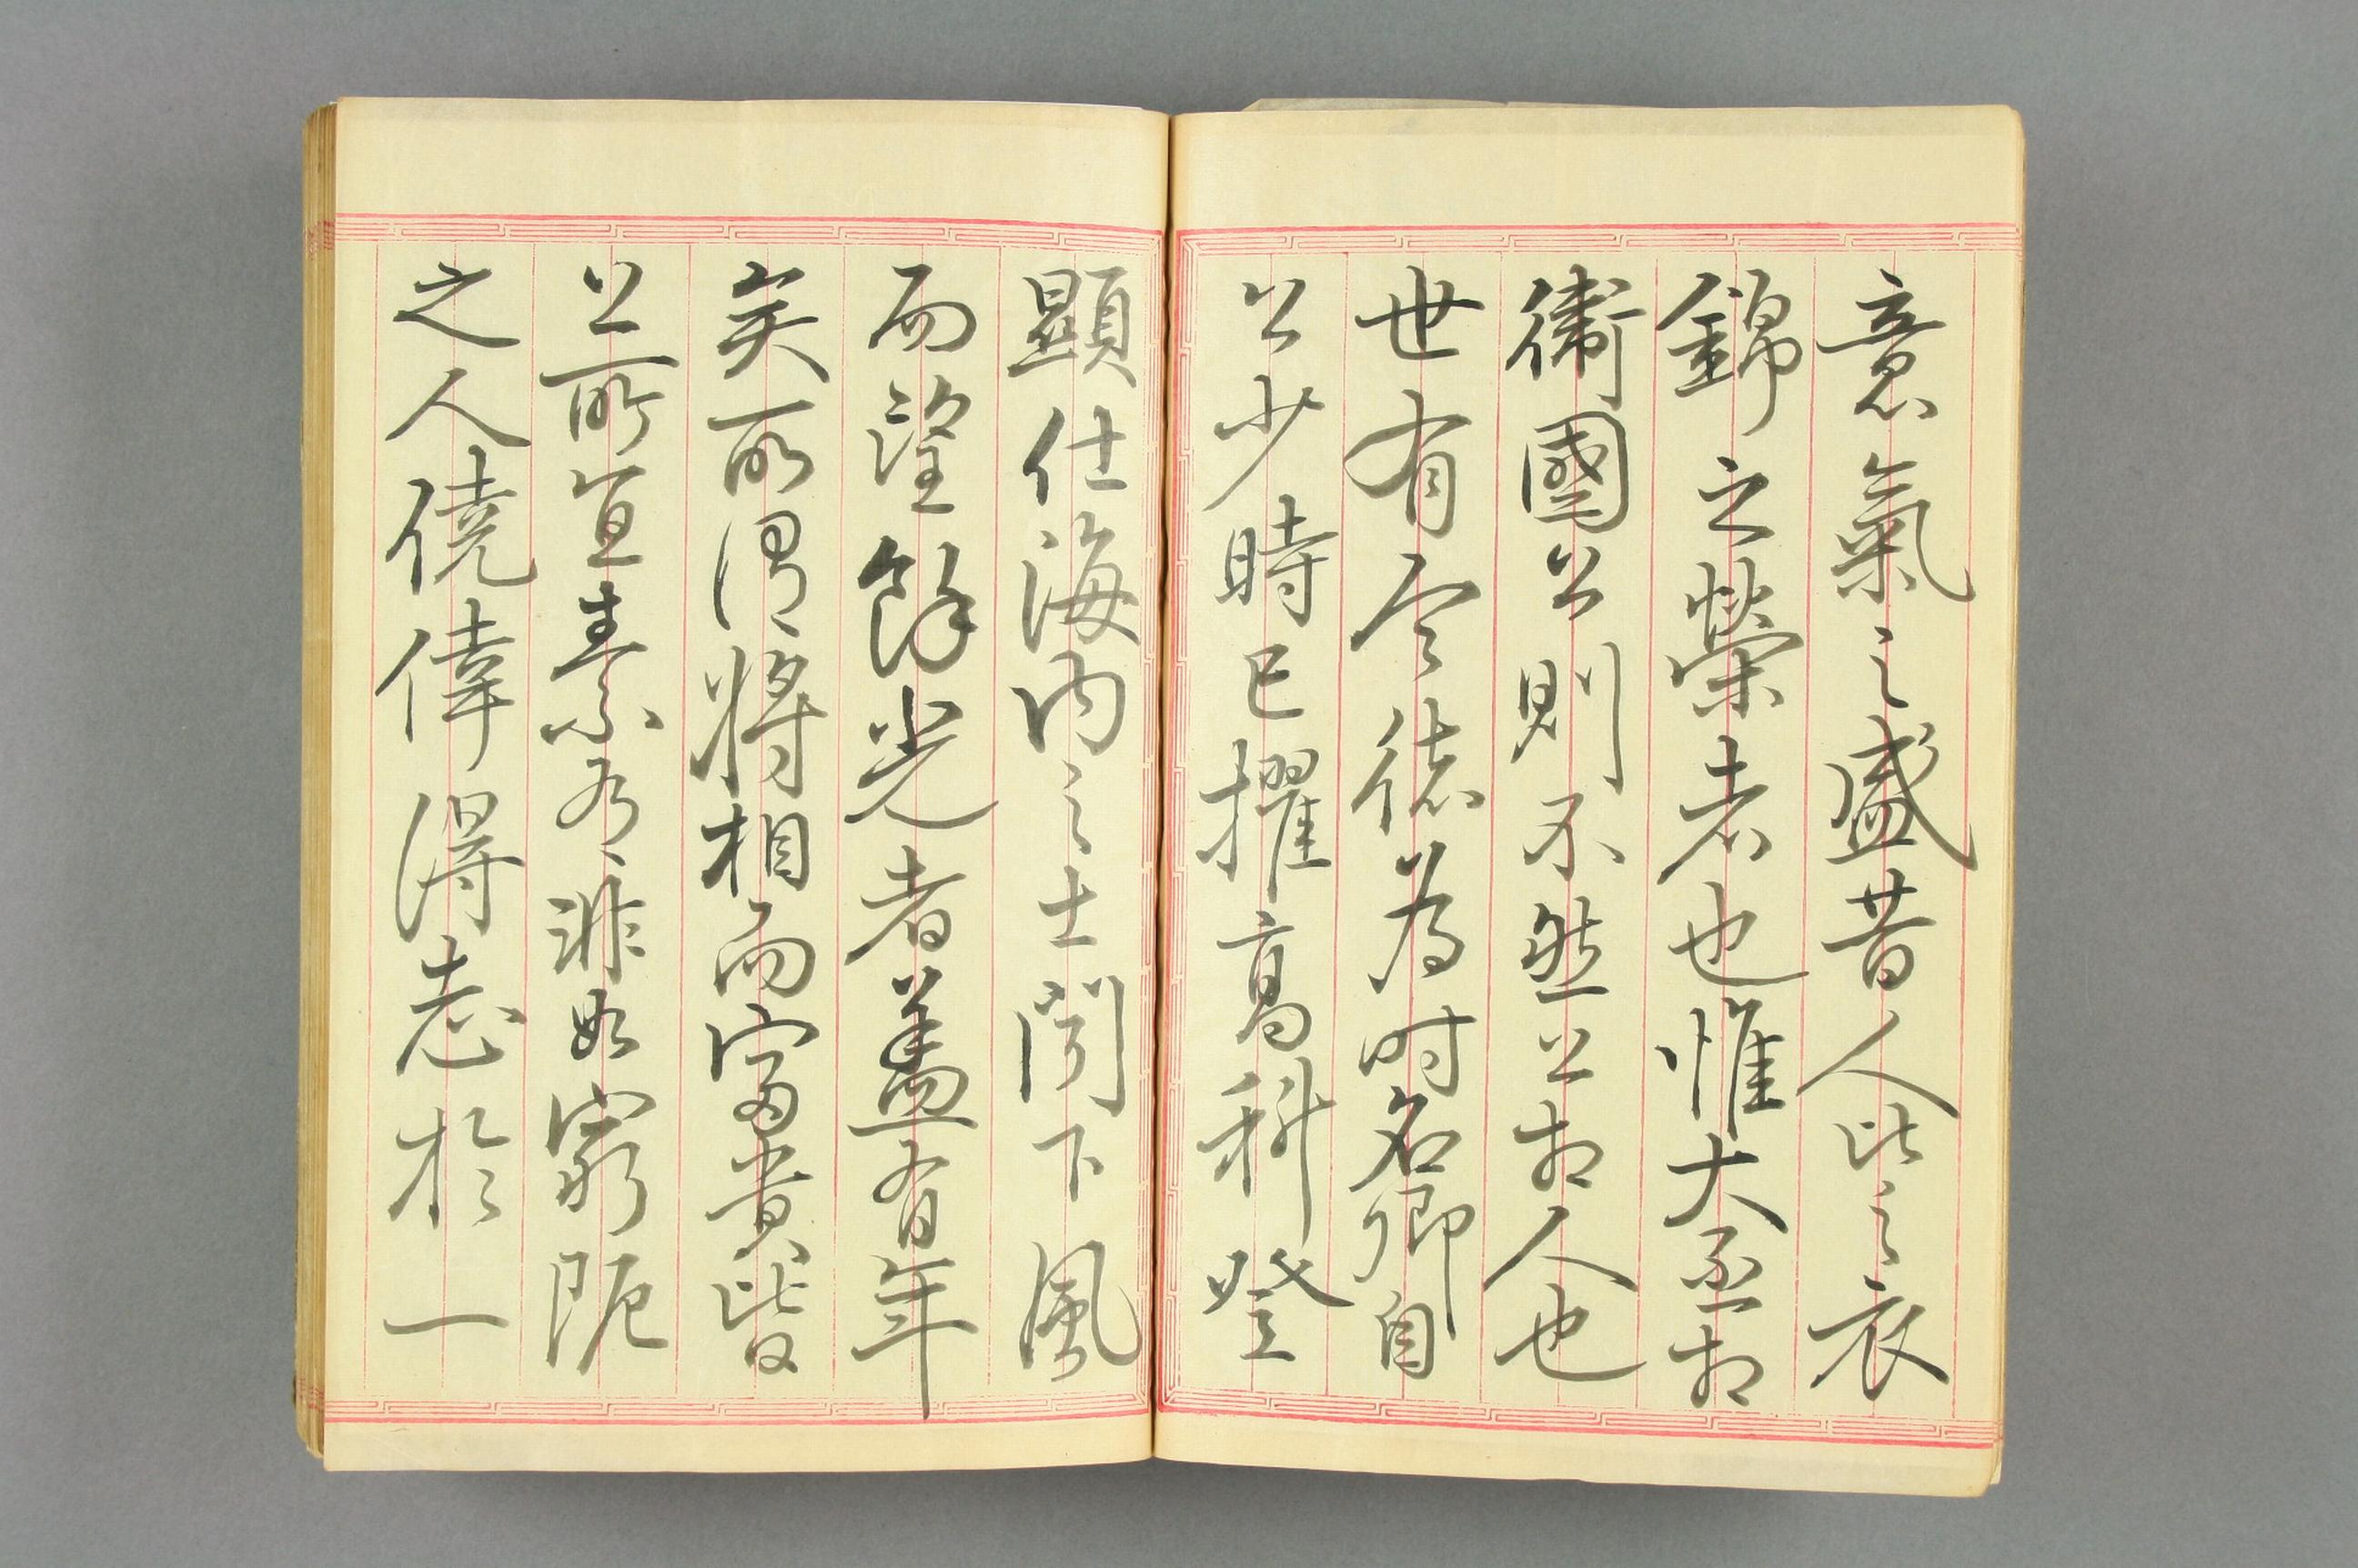 意氣之盛昔人比之衣
錦之榮者也惟大丞相
衛國公則不然公相人也
世有令德為时名卿自
公少時已擢高科登
顯仕海内之士聞下風
而望餘光者蓋有年
矣所謂將相而富貴皆
公所宜素有非如窮阨
之人僥倖得志於一